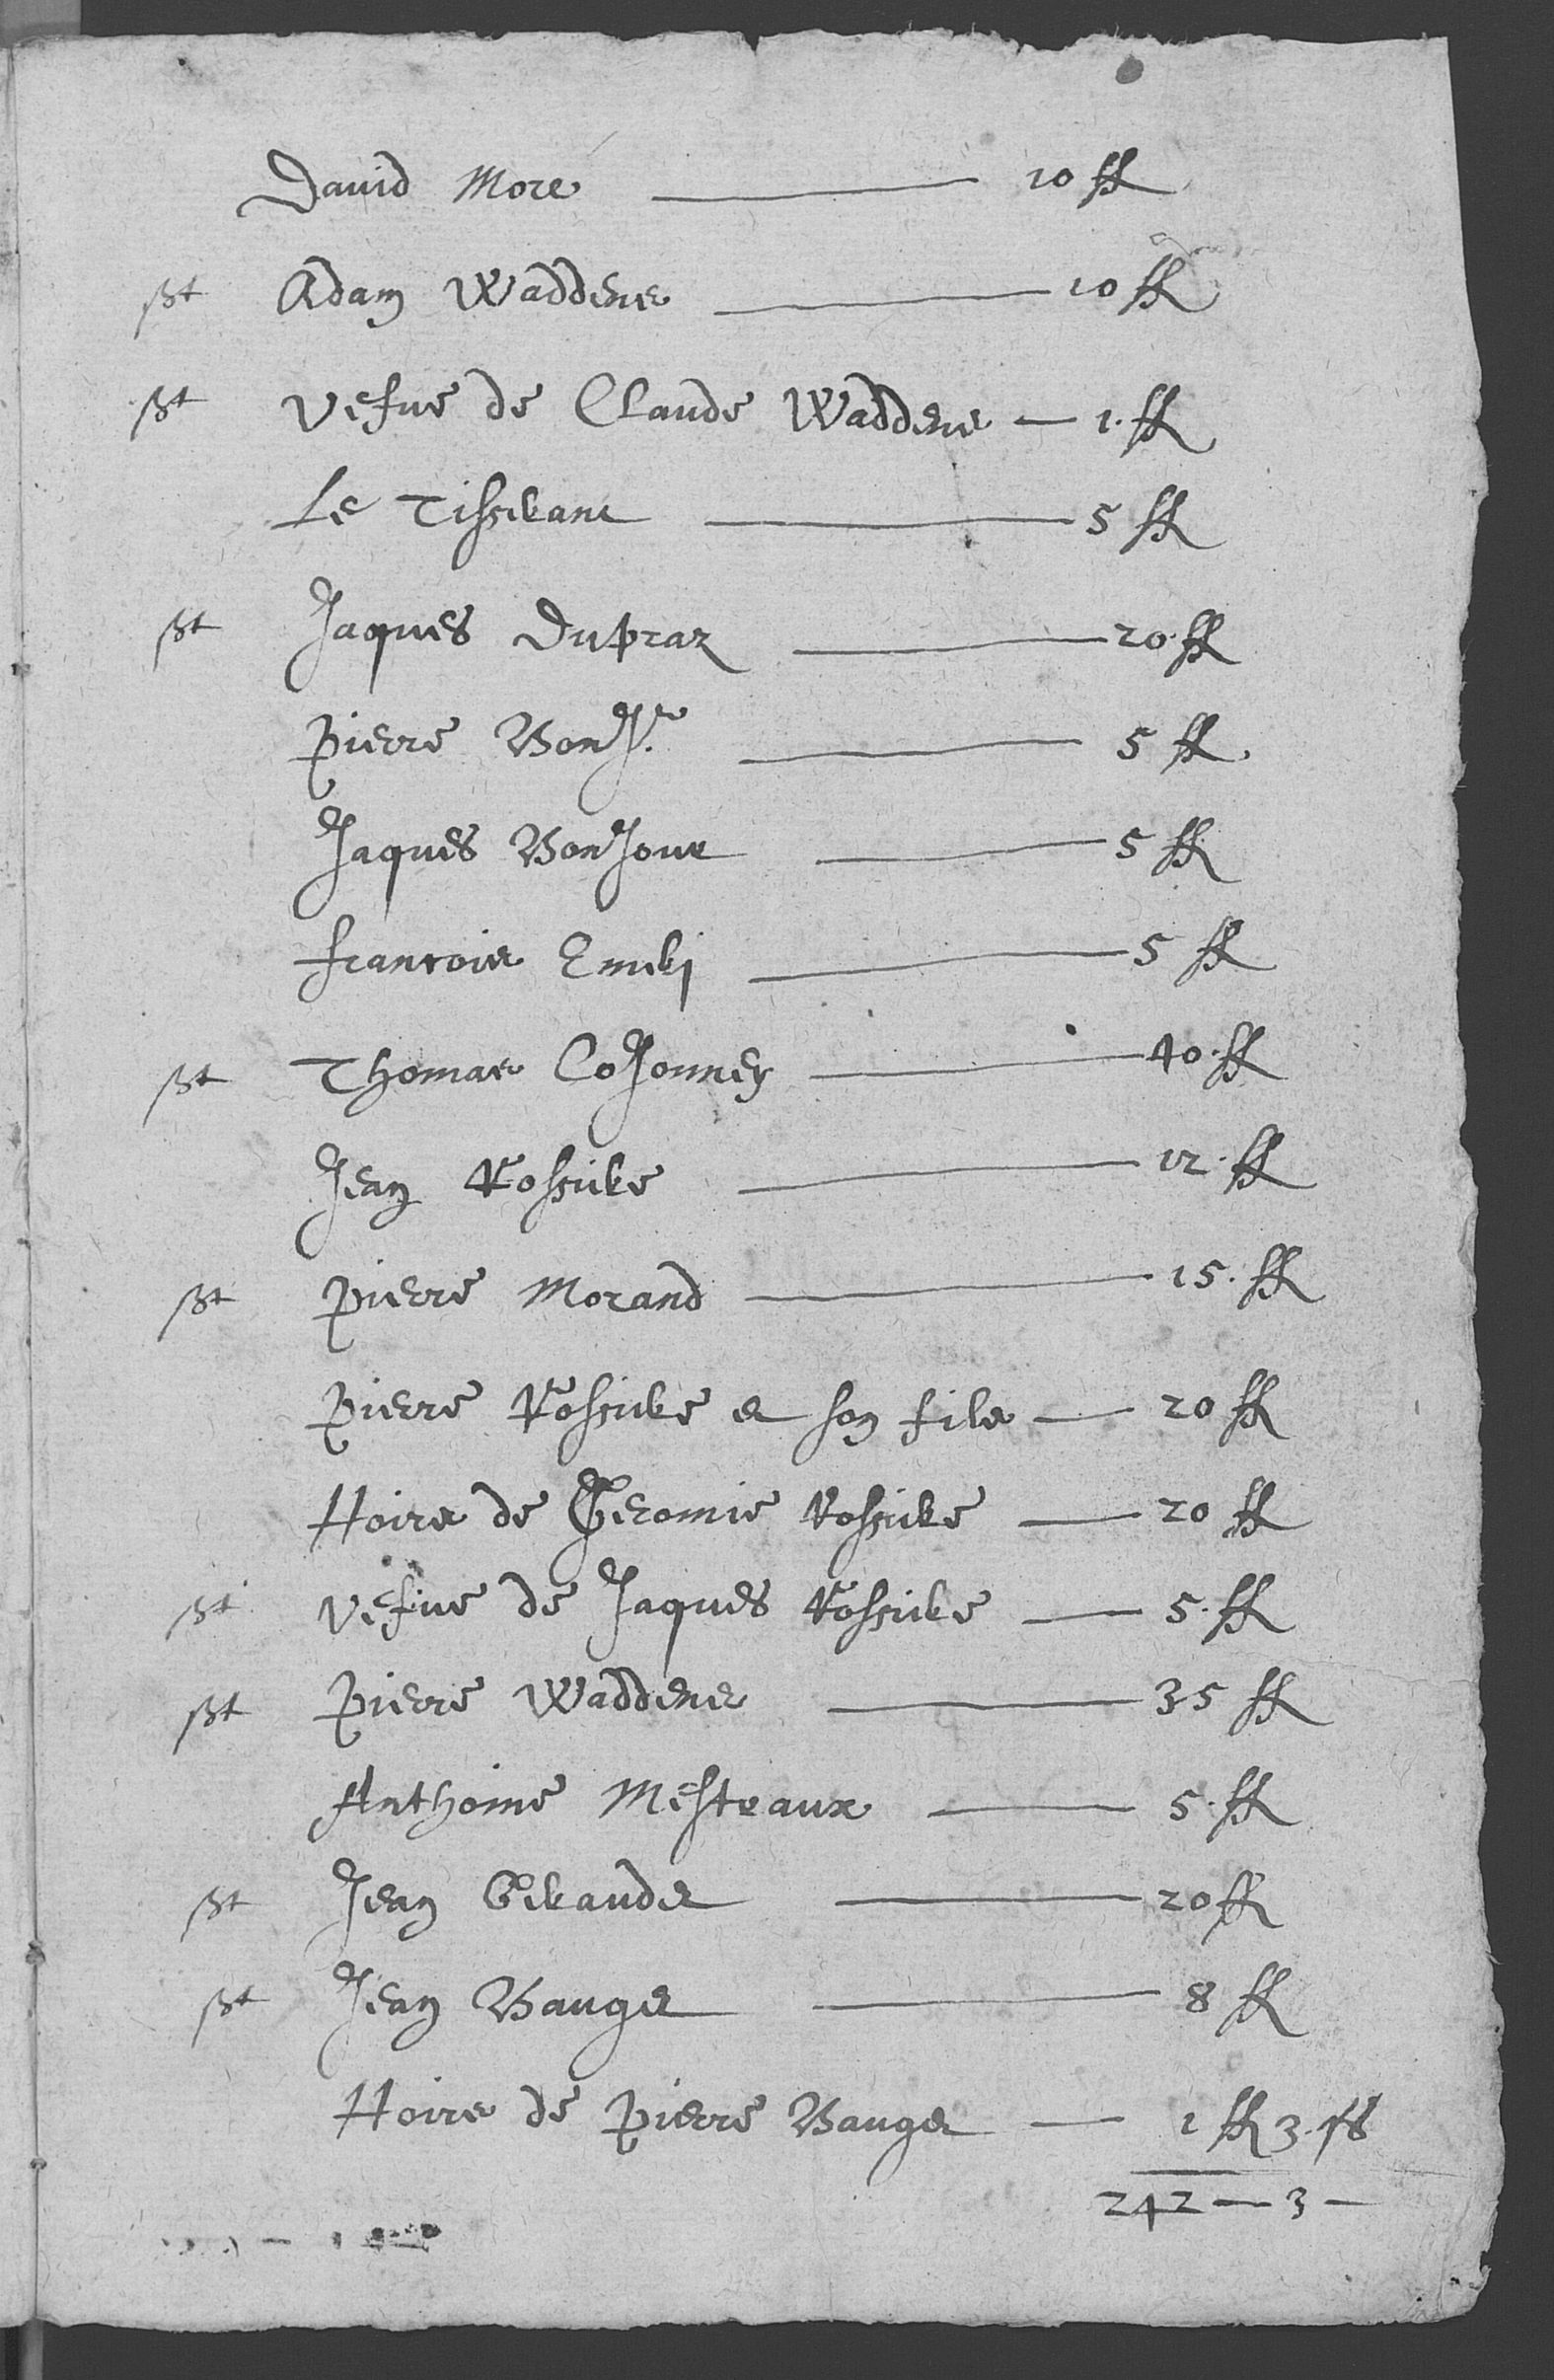 Dauid More ——— 10 ff
pt Adam Waddens ——— 10 ff
pt vefue de Claude Waddens — 1. ff
Le Tisserant ——— 5 ff
pt Jaques Dupraz ——— 20. ff
pierre BonJr. ——— 5 ff
Jaques BonJour ——— 5 ff
francois ——— 5 ff
pt Thomas CoJonney ——— 40. ff
Jean Rossire ——— 12. ff
pt pierre Morand ——— 15. ff
pierre Rossire et son fils — 20 ff
Hoirs de Geromie Rossire — 20 ff
pt vefue de Jaques Rossire — 5. ff
pt pierre Waddens ——— 35 ff
Anthoine Mestraux ——— 5. ff
pt Jean ——— 20 ff
pt Jean Bauget ——— 8 ff
Hoirs de pierre Bauget — 1 ff 3. ß
242 — 3 —